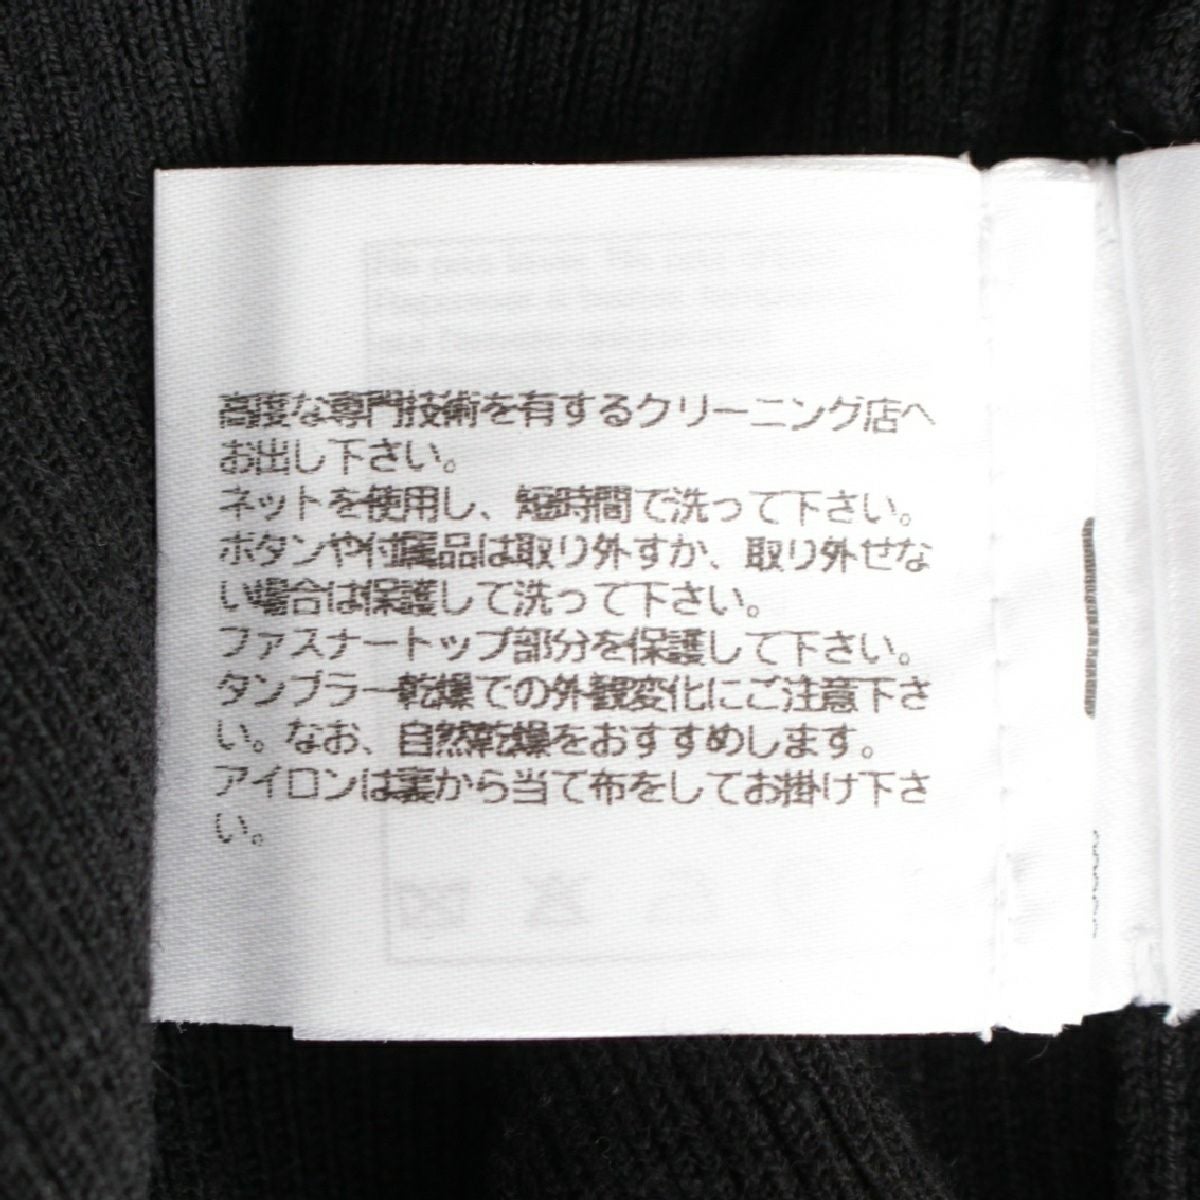 高度な専門技術を有するクリーニング店へ
お出し下さい。
ネットを使用し、短時間で洗って下さい。
ボタンや付属品は取り外すか、取り外せな
い場合は保護して洗って下さい。
ファスナートップ部分を保護して下さい。
タンブラー乾燥での外観変化にご注意下さ
い。なお、自然乾燥をおすすめします。
アイロンは裏から当て布をしてお掛け下さ
い。